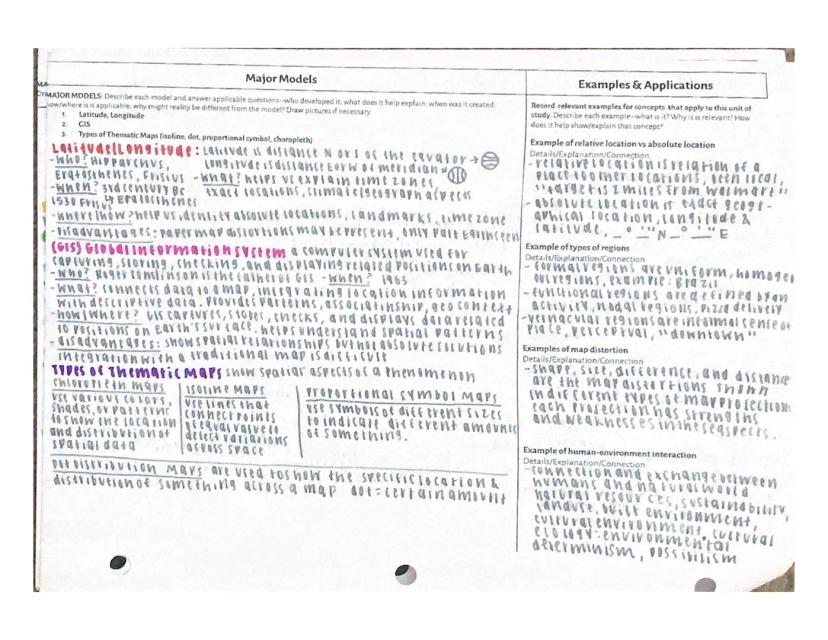 Major Models
MAJOR MODELS: Describe each model and answer applicable questions--who developed it, what does it help explain, when was it created,
how/where is it applicable, why might reality be different from the model? Draw pictures if necessary.
1. Latitude, Longitude
2. GIS
3. Types of Thematic Maps (isoline, dot, proportional symbol, choropleth)
Latitude/Longitude: Latitude is distance N or S of the equator →
-who? Hipparchus, Longitude is distance E or W of meridian
Eratosthenes, Frisius -what? helps us explain time zones
-when? 3rd century BC exact locations, climate/geograph aspects
1530 Frisius by Eratosthenes
-where/how? help us identify absolute locations, landmarks, time zone
-disadvantages: paper map distortions may be present, only part Earth seen
(GIS) Global Information System a computer system used for
capturing, storing, checking, and displaying related positions on Earth
-who? Roger Tomlinson is the father of GIS -when? 1963
-what? connects data to a map, integrating location information
with descriptive data. Provides patterns, association ship, geo context
-how/where? GIS captures, stores, checks, and displays data related
to positions on Earth's surface. helps understand spatial patterns
-disadvantages: show spatial relationships but not absolute solutions
integration with a traditional map is difficult
Types of Thematic Maps show spatial aspects of a phenomenon
chloropleth maps
use various colors,
shades, or patterns
to show the location
and distribution of
spatial data
isoline maps
use lines that
connect points
of equal value to
detect variations
across space
Proportional symbol maps
use symbols of different sizes
to indicate different amounts
of something.
Dot distribution maps are used to show the specific location &
distribution of something across a map dot = certain amount
Examples & Applications
Record relevant examples for concepts that apply to this unit of
study. Describe each example--what is it? Why is is relevant? How
does it help show/explain that concept?
Example of relative location vs absolute location
Details/Explanation/Connection
-relative location is relation of a
place to other locations, often local,
"target is 2 miles from walmart"
-absolute location is exact geogr-
aphical location, longitude &
latitude, _ ° _ ' _ "N _ ° _ ' _ "E
Example of types of regions
Details/Explanation/Connection
-formal regions are uniform, homogen
ous regions, example: Brazil
-functional regions are defined by an
activity, nodal regions, pizza delivery
-vernacular regions are informal sense of
place, perceptual, "downtown"
Examples of map distortion
Details/Explanation/Connection
-shape, size, difference, and distance
are the map distortions shown
in different types of map projection
each projection has strengths
and weaknesses in these aspects.
Example of human-environment interaction
Details/Explanation/Connection
-connection and exchange between
humans and natural world
natural resources, sustainability,
landuse, built environment,
cultural environment, cultural
ecology: environmental
determinism, possibilism